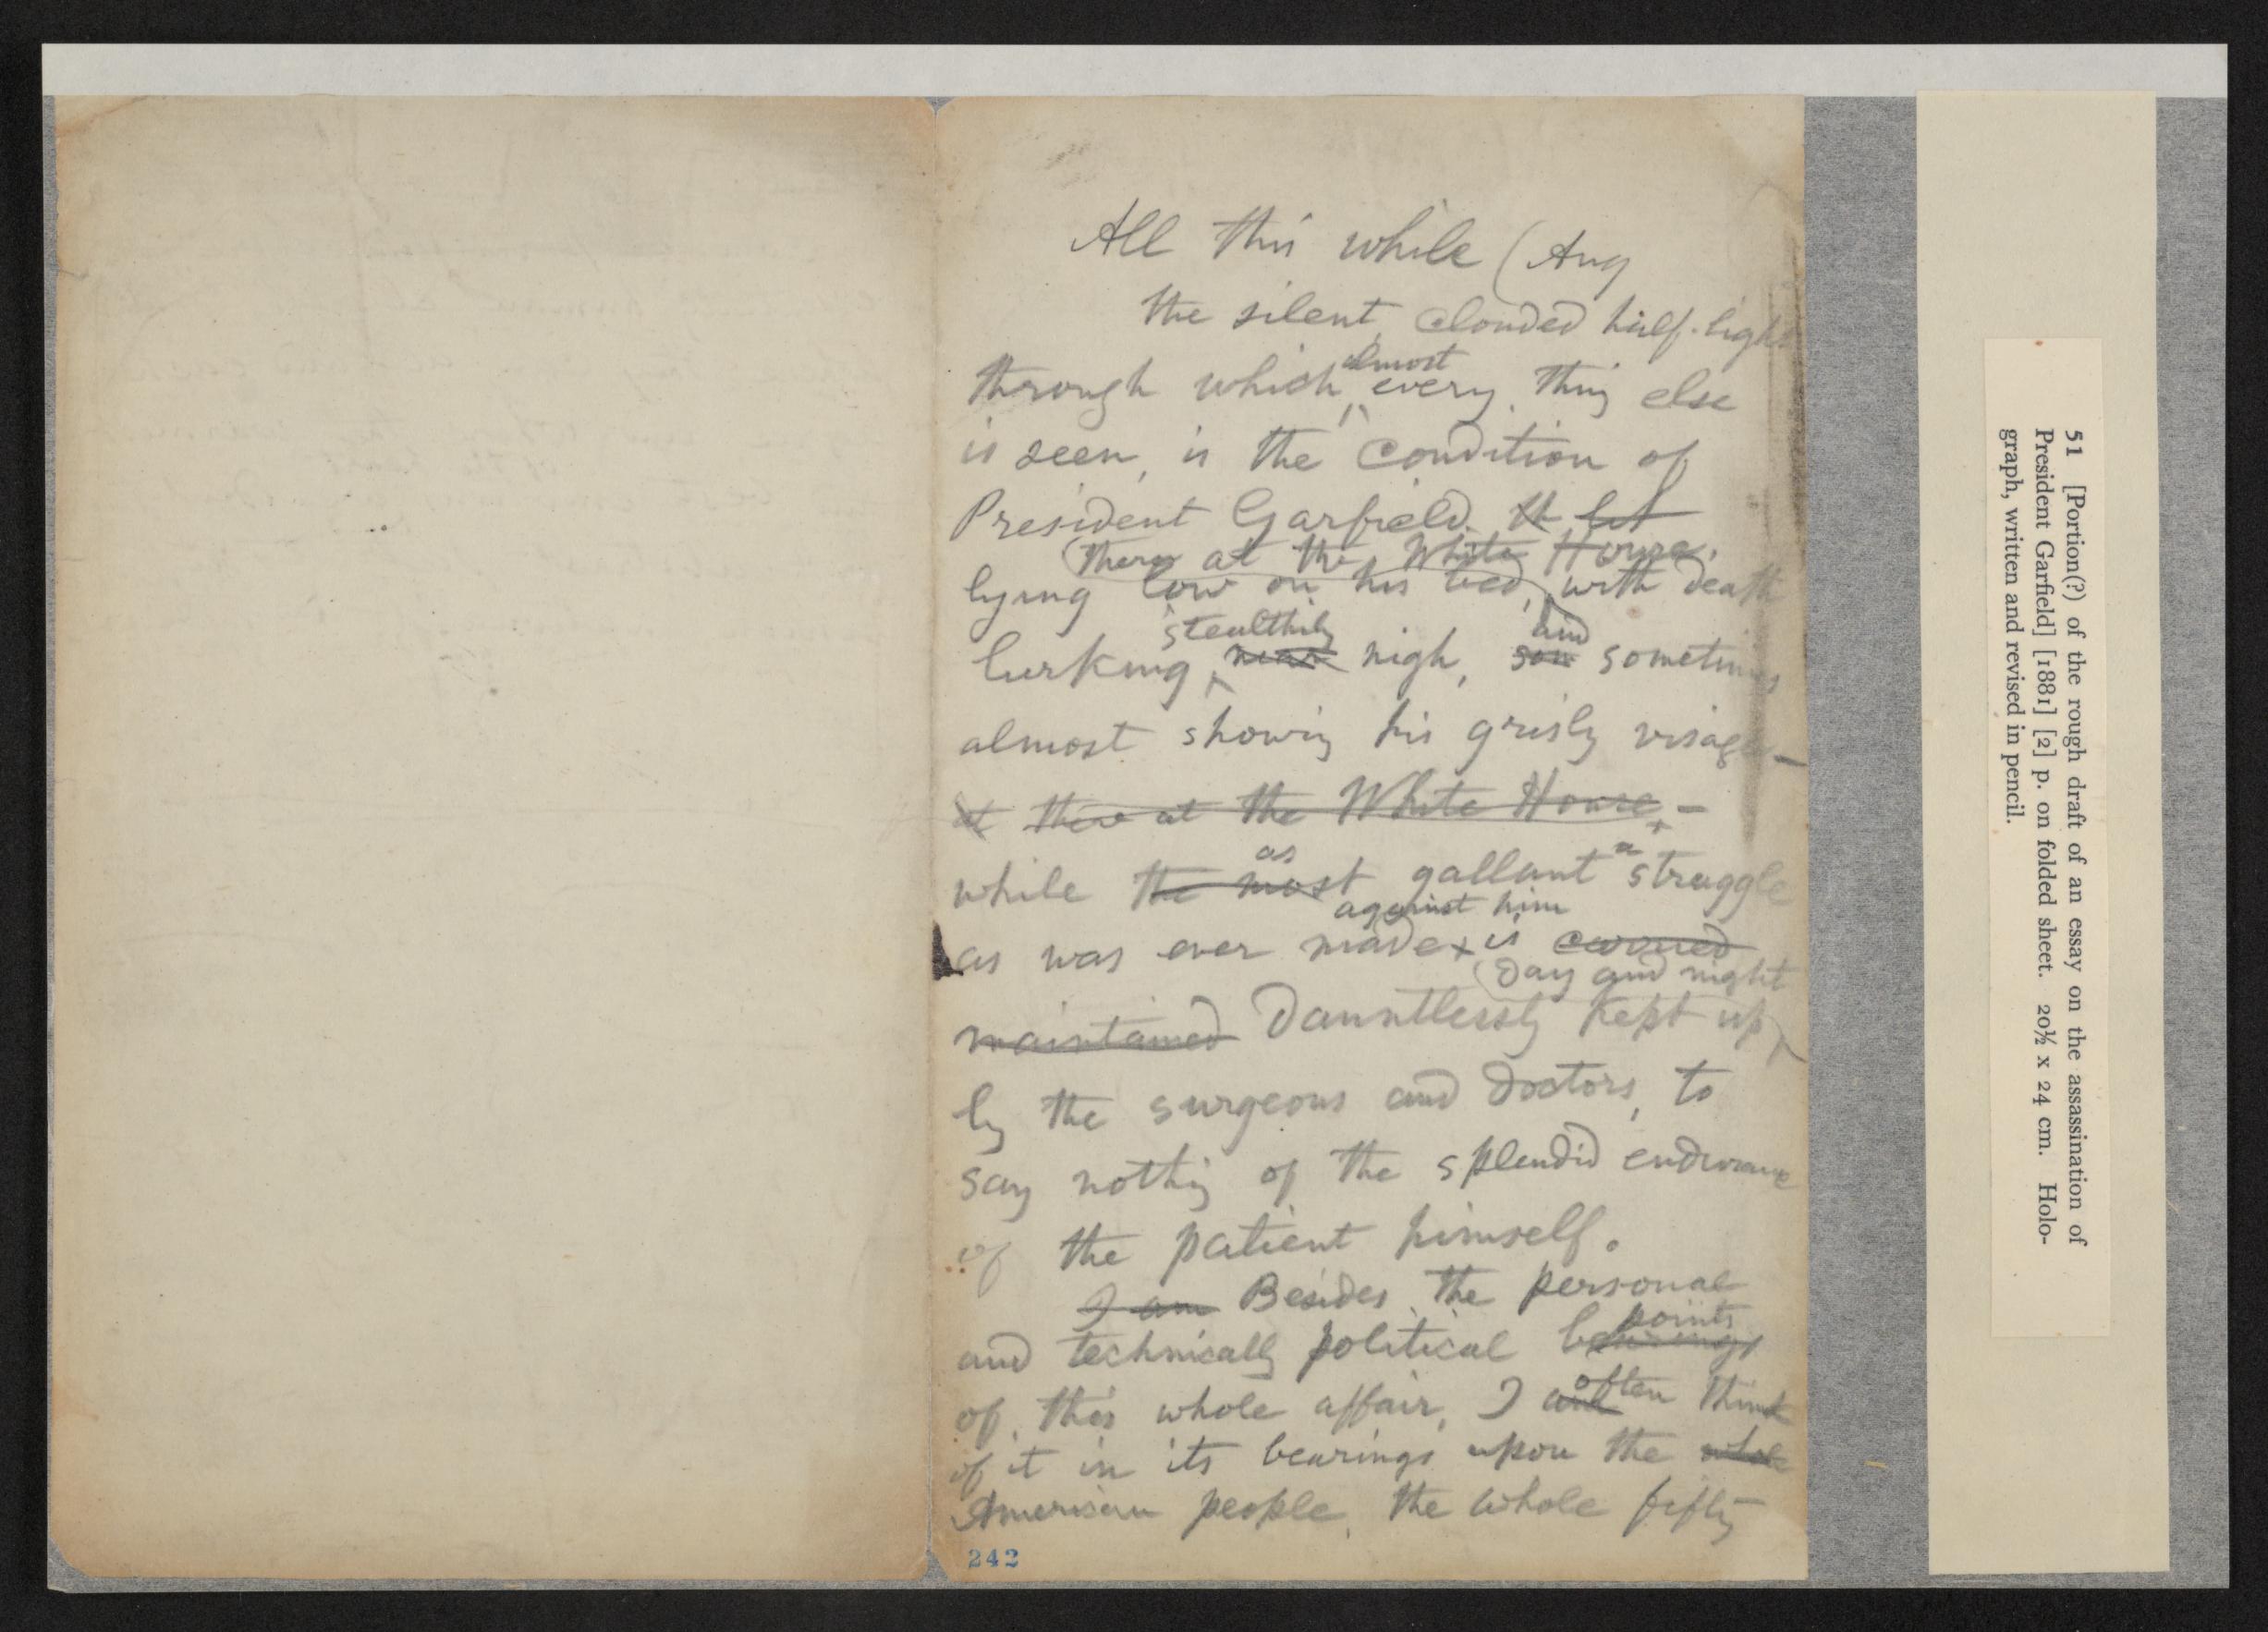 All this while (Aug
the silent, clouded half-light
through which almost every thing else
is seen, is the condition of
President Garfield. It
(there at the White House,
lying low on his bed, with death
stealthily and
lurking near nigh, sometimes
almost showing his grisly visage—
at there at the White House, —
as a
while the most gallant struggle
against him
as was ever made x is
(day and night
maintained dauntlessly kept up
by the surgeons and doctors, to
say nothing of the splendid endurance
of the patient himself.
I am Besides the personal
points
and technically political bearings
often
of this whole affair, I think
of it in its bearings upon the whole
American people, the whole fifty
242
51 [Portion(?) of the rough draft of an essay on the assassination of
President Garfield] [1881] [2] p. on folded sheet. 20½ x 24 cm. Holo-
graph, written and revised in pencil.